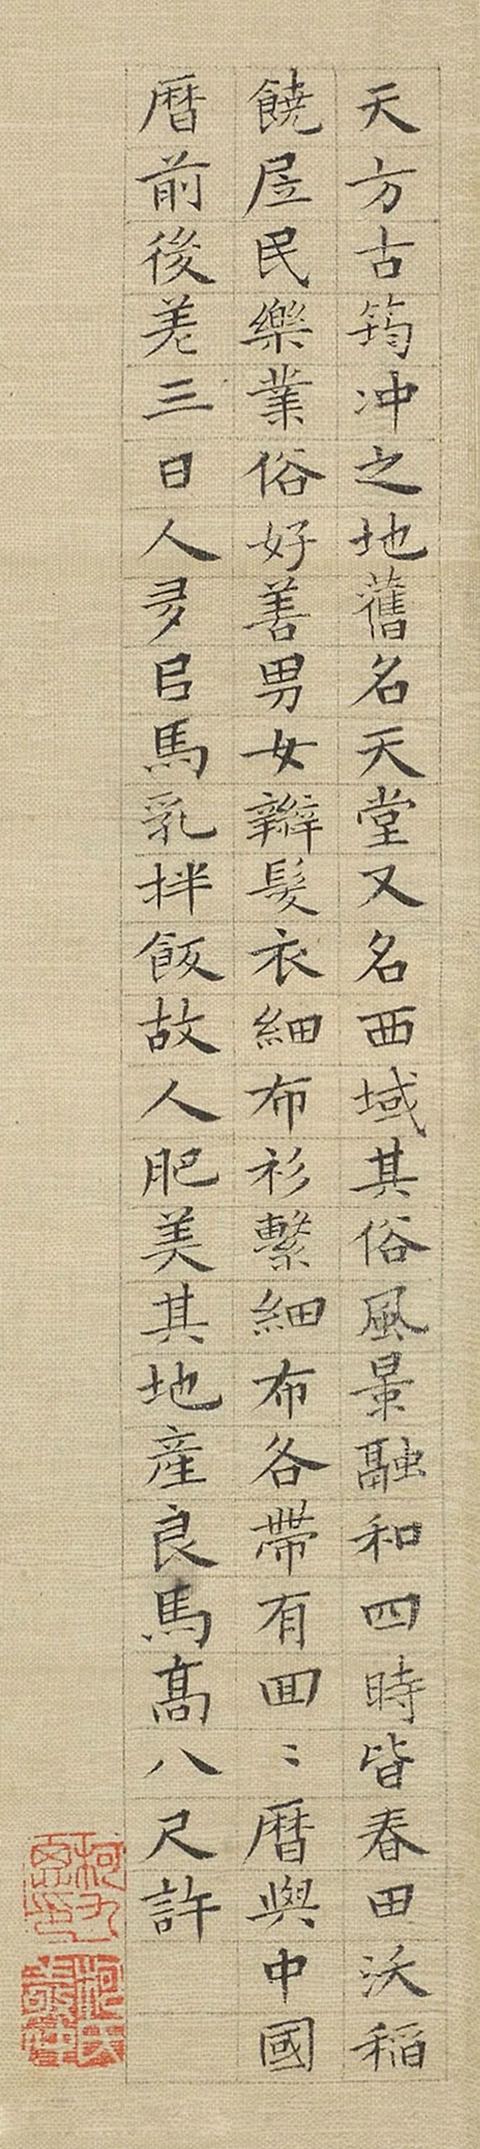 天方古筠冲之地舊名天堂又名西域其俗風景融和四時皆春田沃稲
饒居民樂業俗好善男女辮髮衣細布衫繫細布各帶有囬〻暦與中國
暦前後差三日人多㠯馬乳拌飯故人肥美其地産良馬髙八尺許